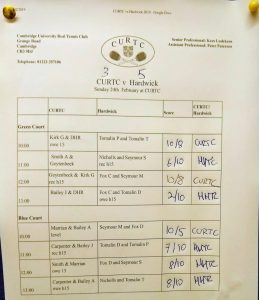 CURTC v Hardwick 2019 - Google Docs
Cambridge University Real Tennis Club
Grange Road
Cambridge
CB3
Telephone: 01223 357106
CURTC
Senior Professional: Kees Ludekens
Assistant Professional: Peter Paterson
3 5
CURTC v Hardwick
Sunday 24th February at CURTC
CURTC Hardwick Score CURTC/ Hardwick
Green Court
10:00 Kirk G & DHR owe 15 Tomalin P and Tomalin T 10/8 CURTC
11:00 Smith A & Nicholls and Seymour S 6/10 HHTC
12:00 & Kirk G rec h15 Fox C and Seymour M 10/8 CURTC
13:00 Bailey J & DHR Fox C and Tomalin D owe h15 2/10 HHTC
Blue Court
10:00 Marrian & Bailey A level Seymour M and Fox D 10/5 CURTC
11:00 Carpenter & Bailey J rec h15 Tomalin D and Tomalin P 7/10 HHTC
12:00 Smith & Marrian owe 15 Fox D and Seymour S 8/10 HHTC
13:00 Carpenter & Bailey A rec h15 Nicholls and Tomalin T 8/10 HHTC